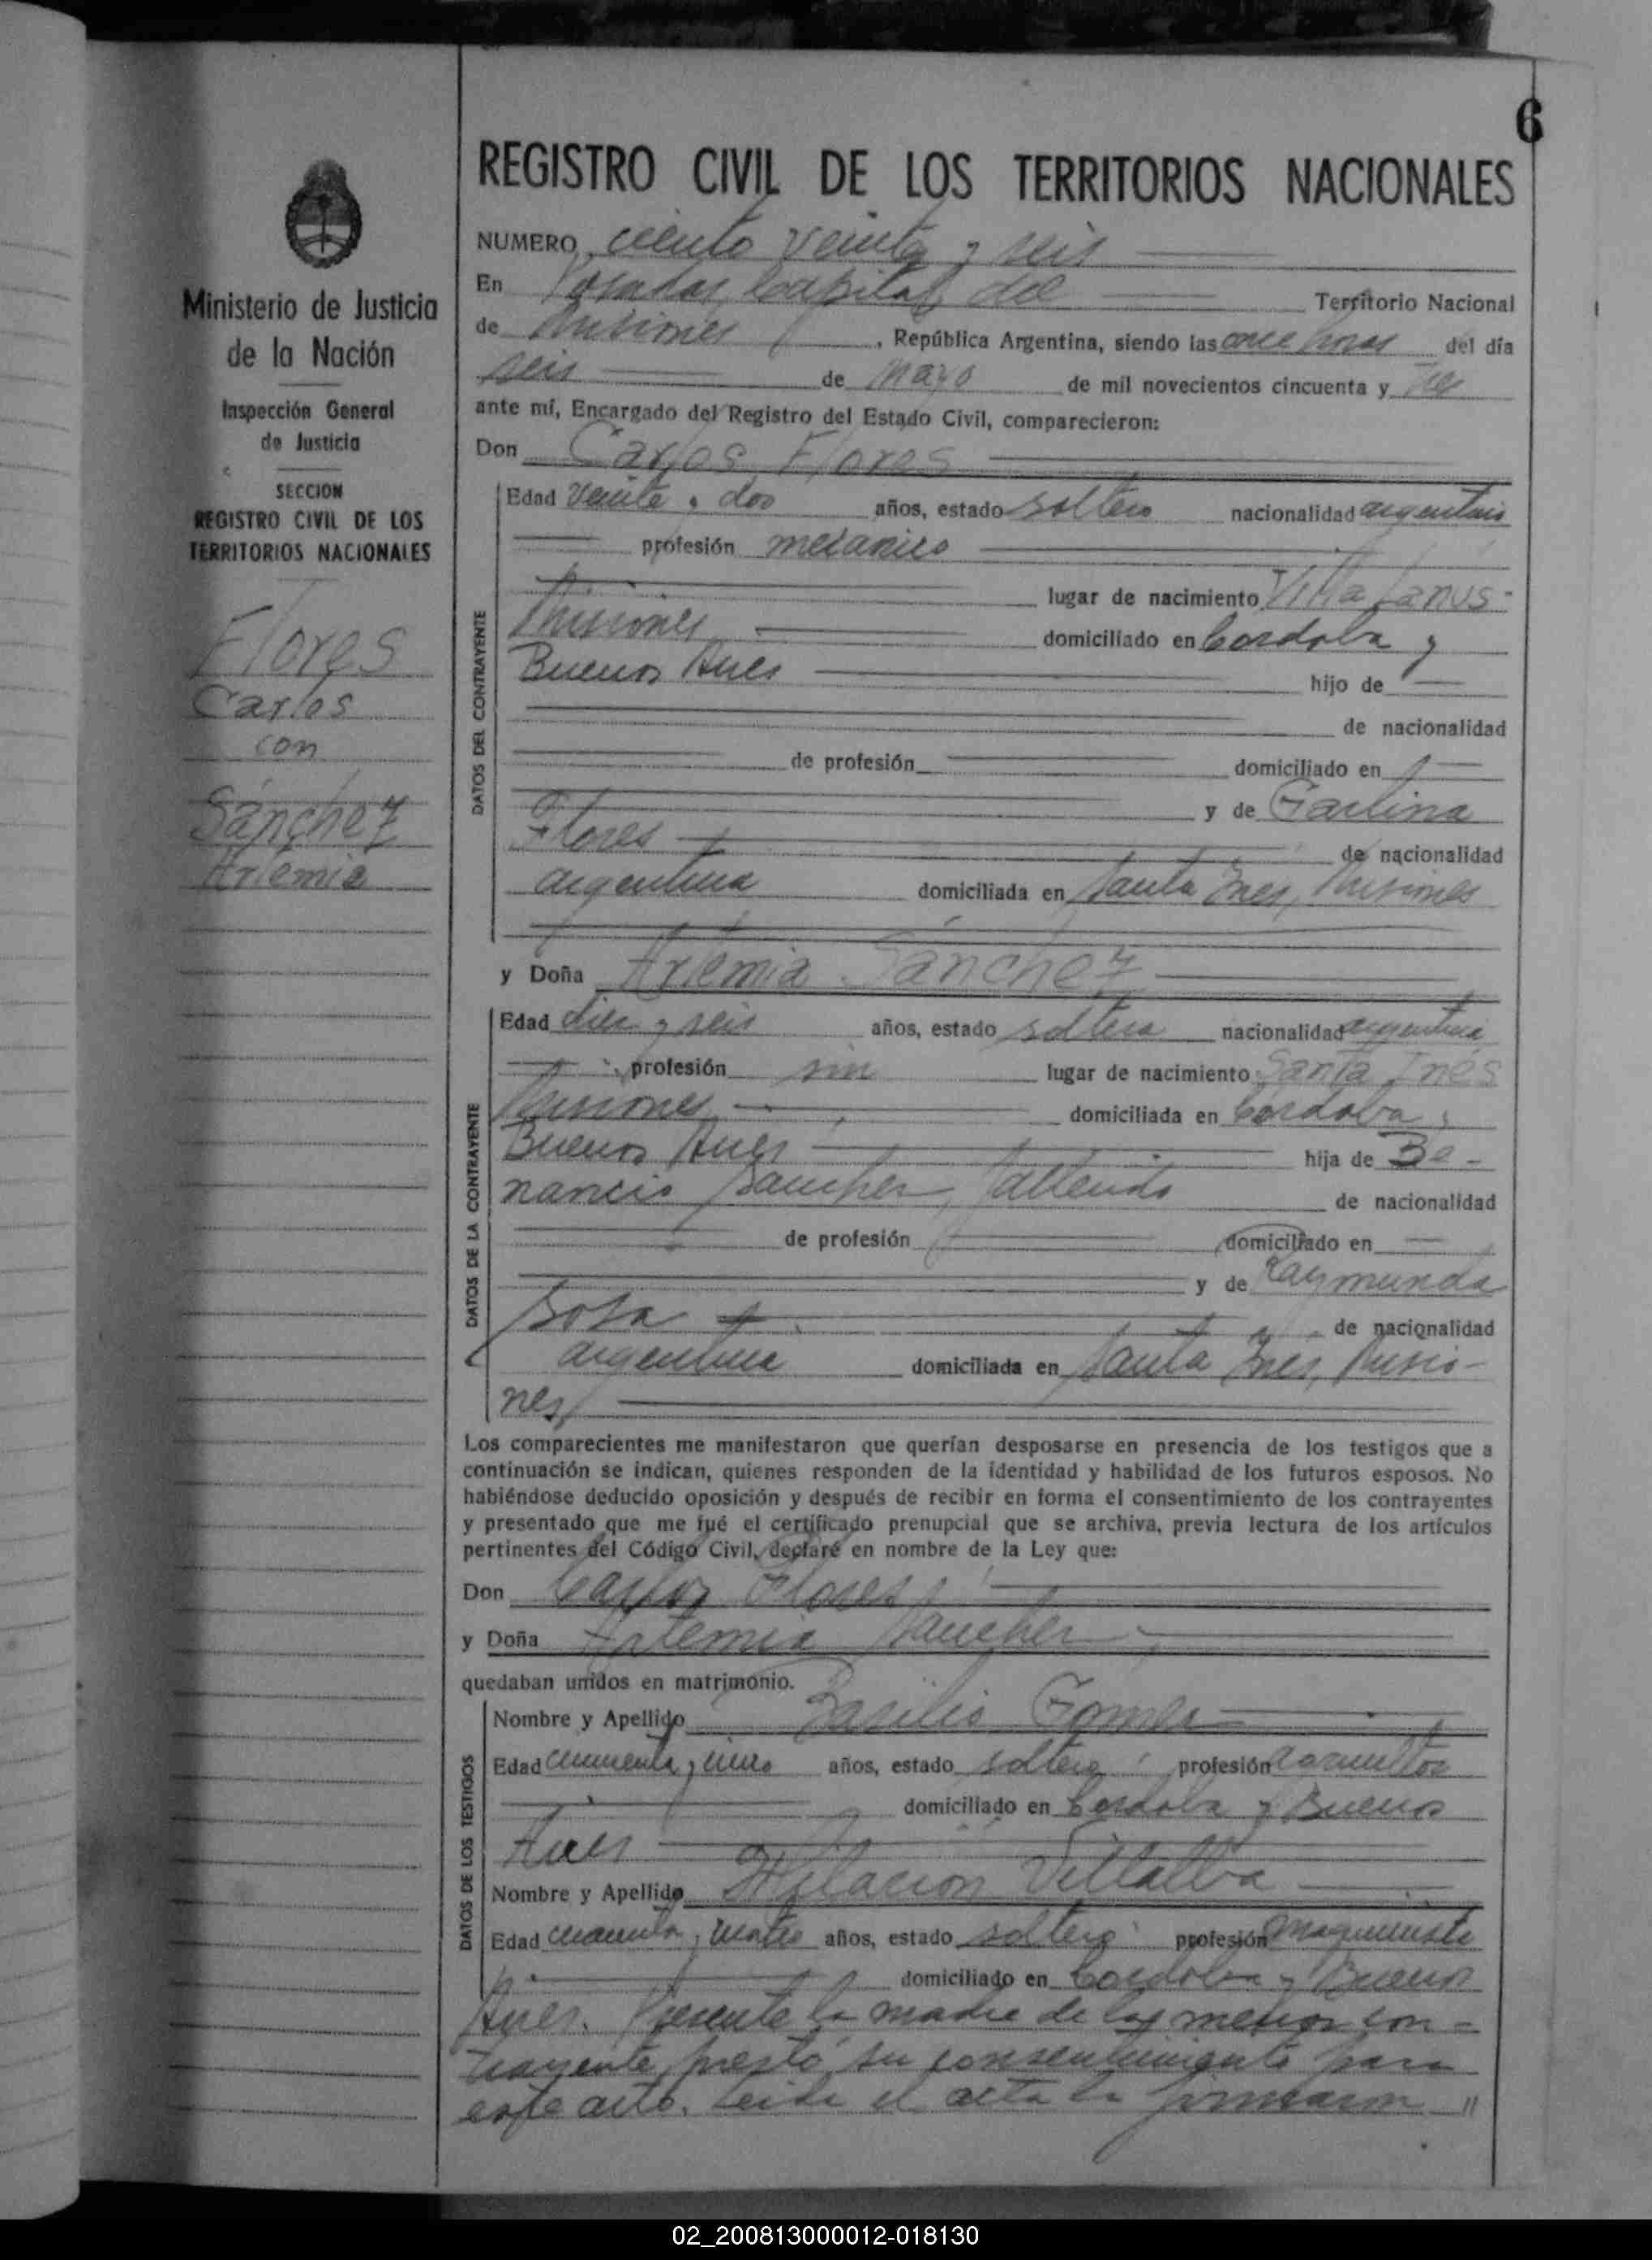 6
REGISTRO CIVIL DE LOS TERRITORIOS NACIONALES
Ministerio de Justicia
de la Nación
Inspección General
de Justicia
SECCION
REGISTRO CIVIL DE LOS
TERRITORIOS NACIONALES
Flores
Carlos
con
Sánchez
Artemia
NUMERO ciento veinte y seis
En Posadas, Capital del Territorio Nacional
de Misiones, República Argentina, siendo las once horas del día
seis de Mayo de mil novecientos cincuenta y tres
ante mí, Encargado del Registro del Estado Civil, comparecieron:
Don Carlos Flores
DATOS DEL CONTRAYENTE
Edad veinte y dos años, estado soltero nacionalidad argentino
profesión mecanico
lugar de nacimiento Villa Lanus-
Misiones domiciliado en Córdoba y
Buenos Aires hijo de
de nacionalidad
de profesión domiciliado en
y de
Flores de nacionalidad
argentina domiciliada en Santa Ines, Misiones
y Doña Artemia Sánchez
DATOS DE LA CONTRAYENTE
Edad diez y seis años, estado soltera nacionalidad argentina
profesión sin lugar de nacimiento Santa Inés
Misiones domiciliada en Córdoba y
Buenos Aires hija de Be-
nancio Sanchez, fallecido de nacionalidad
de profesión domiciliado en
y de Raymunda
Sosa de nacionalidad
argentina domiciliada en Santa Ines, Misio-
nes
Los comparecientes me manifestaron que querían desposarse en presencia de los testigos que a
continuación se indican, quienes responden de la identidad y habilidad de los futuros esposos. No
habiéndose deducido oposición y después de recibir en forma el consentimiento de los contrayentes
y presentado que me fué el certificado prenupcial que se archiva, previa lectura de los artículos
pertinentes del Código Civil, declaré en nombre de la Ley que:
Don Carlos Flores
y Doña Artemia Sanchez
quedaban unidos en matrimonio.
DATOS DE LOS TESTIGOS
Nombre y Apellido Basilio Gomez
Edad cincuenta y cinco años, estado soltero profesión agricultor
domiciliado en Cordoba y Buenos
Aires
Nombre y Apellido Hilarion Villalba
Edad cuarenta y cuatro años, estado soltero profesión maquinista
domiciliado en Cordoba y Buenos
Aires. Presente la madre de la menor con-
trayente prestó su consentimiento para
este acto. Leida el acta la firmaron
02_200813000012-018130